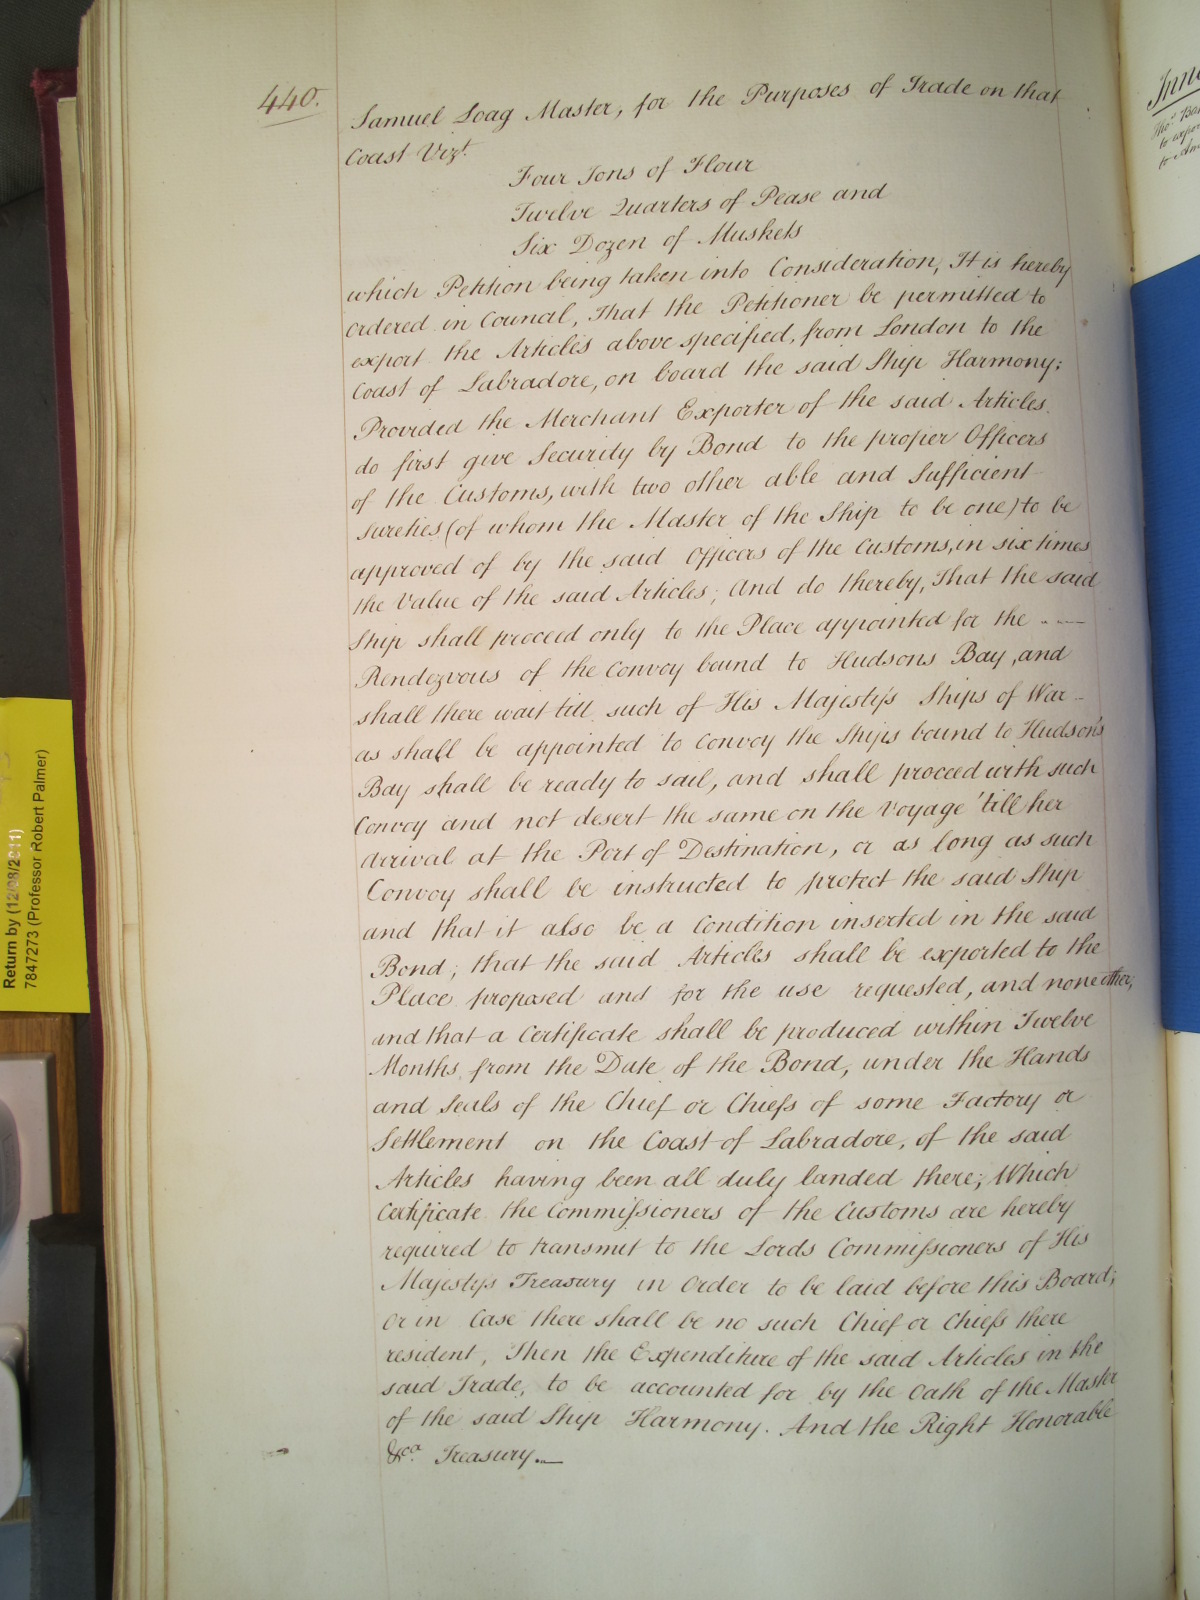 440.
Samuel Soag Master, for the Purposes of Trade on that
Coast Vizt.
Four Tons of Flour
Twelve Quarters of Pease and
Six Dozen of Muskets
which Petition being taken into Consideration, It is hereby
ordered in Council, That the Petitioner be permitted to
export the Articles above specified, from London to the
Coast of Labradore, on board the said Ship Harmony;
Provided the Merchant Exporter of the said Articles
do first give Security by Bond to the proper Officers
of the Customs, with two other able and sufficient
sureties (of whom the Master of the Ship to be one) to be
approved of by the said Officers of the Customs, in six times
the Value of the said Articles; And do thereby, That the said
Ship shall proceed only to the Place appointed for the
Rendezvous of the Convoy bound to Hudsons Bay, and
shall there wait till such of His Majesty's Ships of War
as shall be appointed to Convoy the Ships bound to Hudson's
Bay shall be ready to sail, and shall proceed with such
Convoy and not desert the same on the Voyage 'till her
arrival at the Port of Destination, or as long as such
Convoy shall be instructed to protect the said Ship
and that it also be a Condition inserted in the said
Bond, that the said Articles shall be exported to the
Place proposed and for the use requested, and none other,
and that a Certificate shall be produced within Twelve
Months from the Date of the Bond, under the Hands
and Seals of the Chief or Chiefs of some Factory or
Settlement on the Coast of Labradore, of the said
Articles having been all duly landed there; Which
Certificate the Commissioners of the Customs are hereby
required to transmit to the Lords Commissioners of His
Majestys Treasury in Order to be laid before this Board;
Or in Case there shall be no such Chief or Chiefs there
resident, Then the Expenditure of the said Articles in the
said Trade, to be accounted for by the Oath of the Master
of the said Ship Harmony. And the Right Honorable
&ca. Treasury.
Return by (12/08/2011)
7847273 (Professor Robert Palmer)
Thos.
to
to